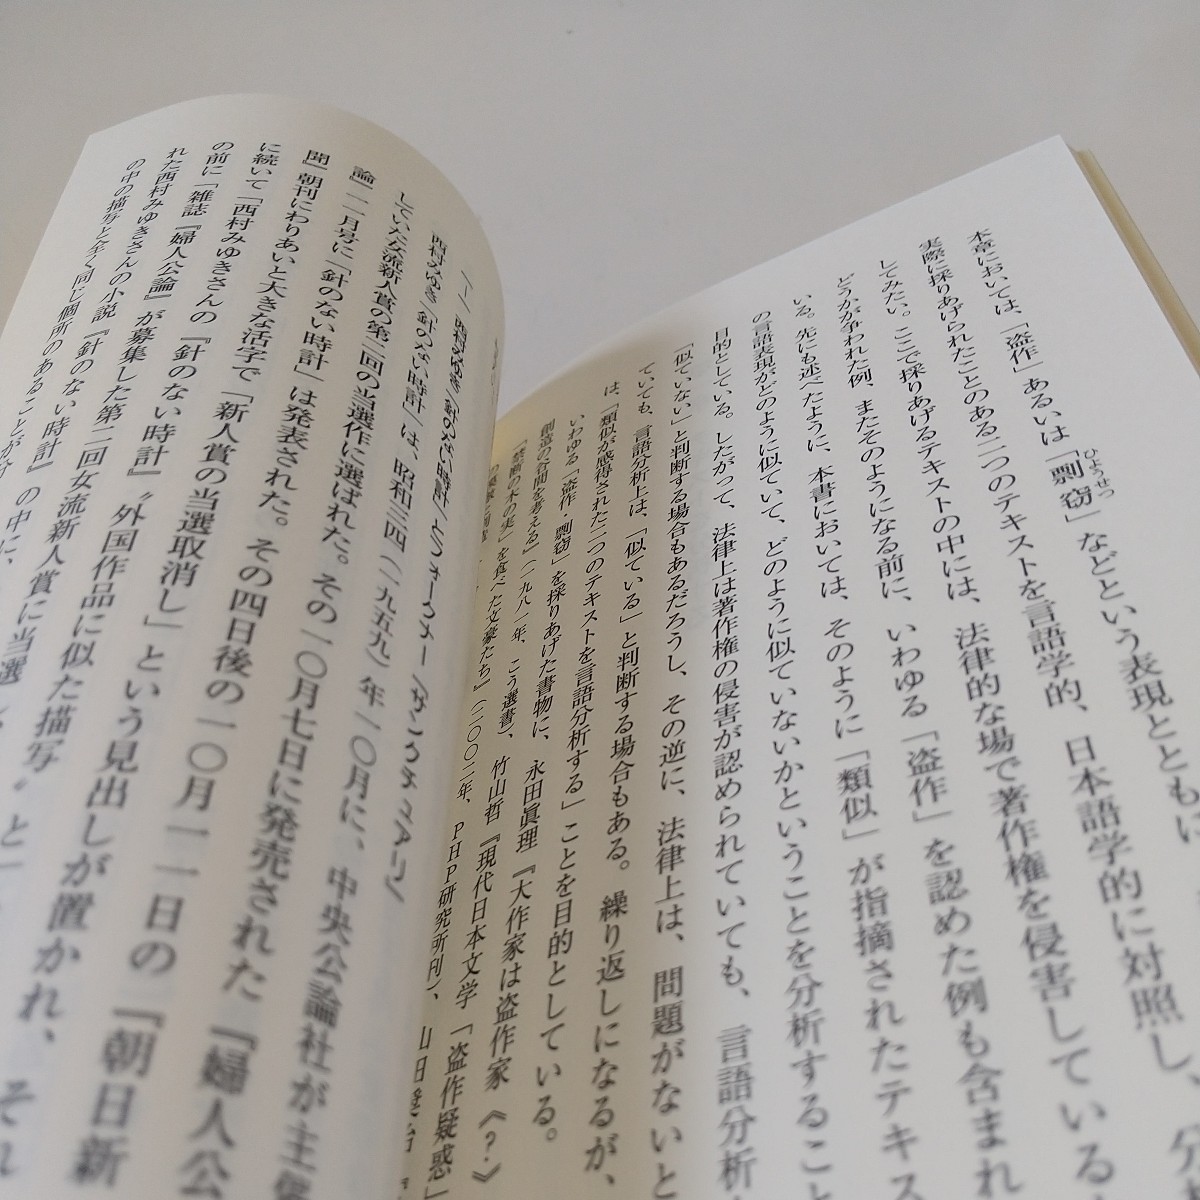 本章においては、「盗作」あるいは「剽窃」などという表現とともに
ひょうせつ
実際に採りあげられたことのある二つのテキストを言語学的、日本語学的に対照し、分析
してみたい。ここで採りあげるテキストの中には、法律的な場で著作権を侵害している
どうかが争われた例、またそのようになる前に、いわゆる「盗作」を認めた例も含まれ
いる。先にも述べたように、本書においては、そのように「類似」が指摘されたテキス
の言語表現がどのように似ていて、どのように似ていないかということを分析すること
目的としている。したがって、法律上は著作権の侵害が認められていても、言語分析
「似ていない」と判断する場合もあるだろうし、その逆に、法律上は、問題がないと
ていても、言語分析上は、「似ている」と判断する場合もある。繰り返しになるが、
は、「類似が感得された二つのテキストを言語分析する」ことを目的としている。
いわゆる「盗作・剽窃」を採りあげた書物に、永田眞理『大作家は盗作家《？》
創造の合間を考える』（一九八一年、こう選書）、竹山哲『現代日本文学「盗作疑惑」
「禁断の木の実」を食べた文豪たち』（二〇〇二年、PHP研究所刊）、
西村みゆき「針のない時計」とフォークナー「サンクチュアリ」
西村みゆき「針のない時計」は、昭和三四（一九五九）年一〇月に、中央公論社が主催
していた女流新人賞の第二回の当選作に選ばれた。その一〇月七日に発売された『婦人公
論』一一月号に「針のない時計」は発表された。その四日後の一〇月一一日の『朝日新
聞』朝刊にわりあいと大きな活字で「新人賞の当選取消し」という見出しが置かれ、それ
に続いて「西村みゆきさんの『針のない時計』〝外国作品に似た描写〟と
の前に「雑誌『婦人公論』が募集した第二回女流新人賞に当選し
れた西村みゆきさんの小説『針のない時計』の中に、
の中の描写と全く同じ個所のあることが分